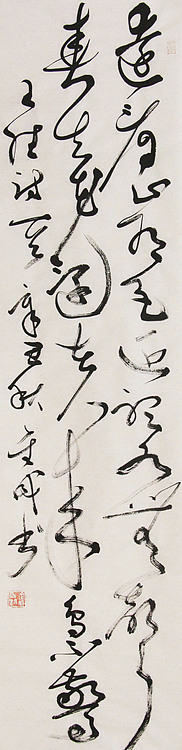 遠看山有色近聽水無聲
春去花還在人來鳥不驚
王維詩一首辛丑秋書